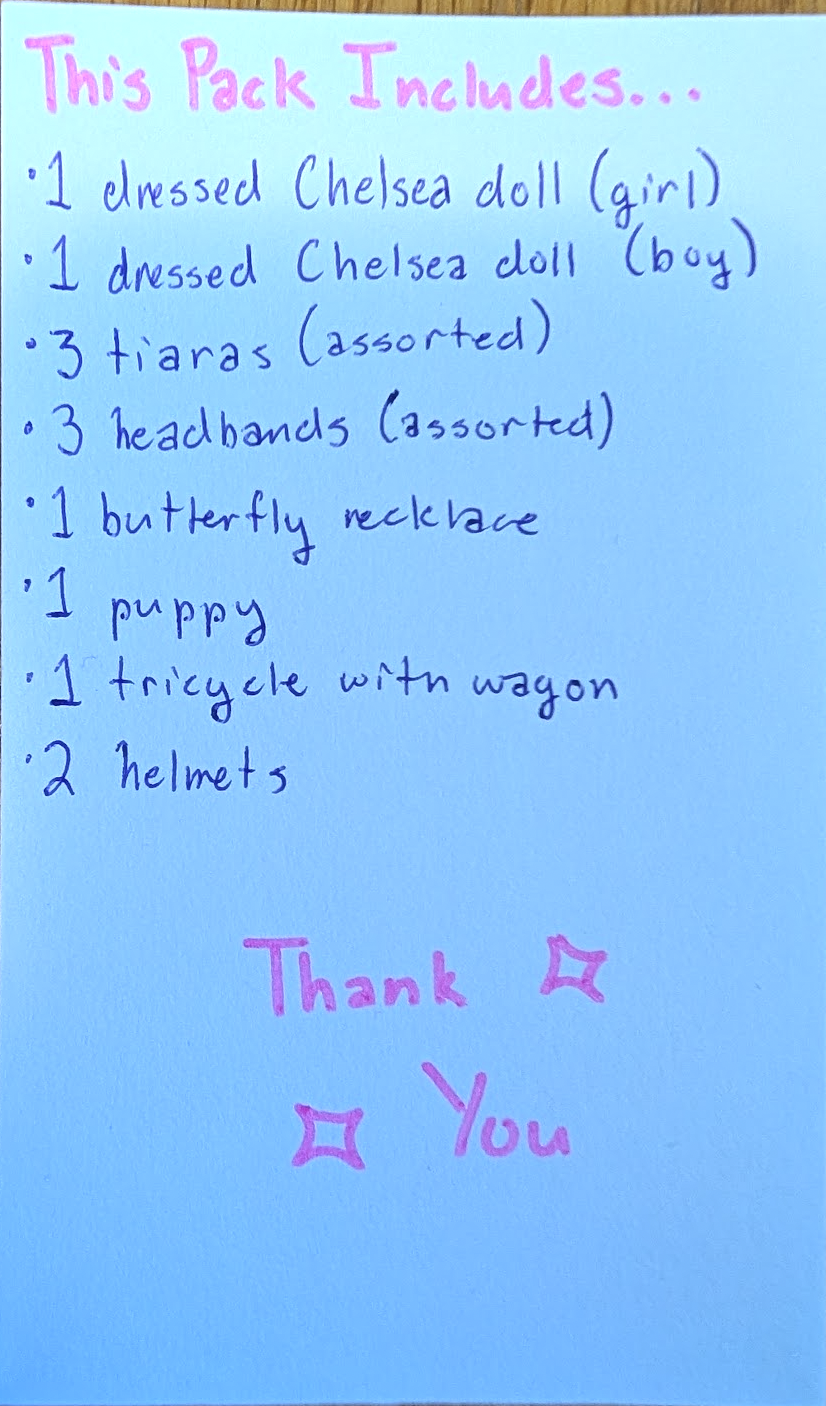 This Pack Includes...
·1 dressed Chelsea doll (girl)
·1 dressed Chelsea doll (boy)
·3 tiaras (assorted)
·3 headbands (assorted)
·1 butterfly necklace
·1 puppy
·1 tricycle with wagon
·2 helmets
Thank
You